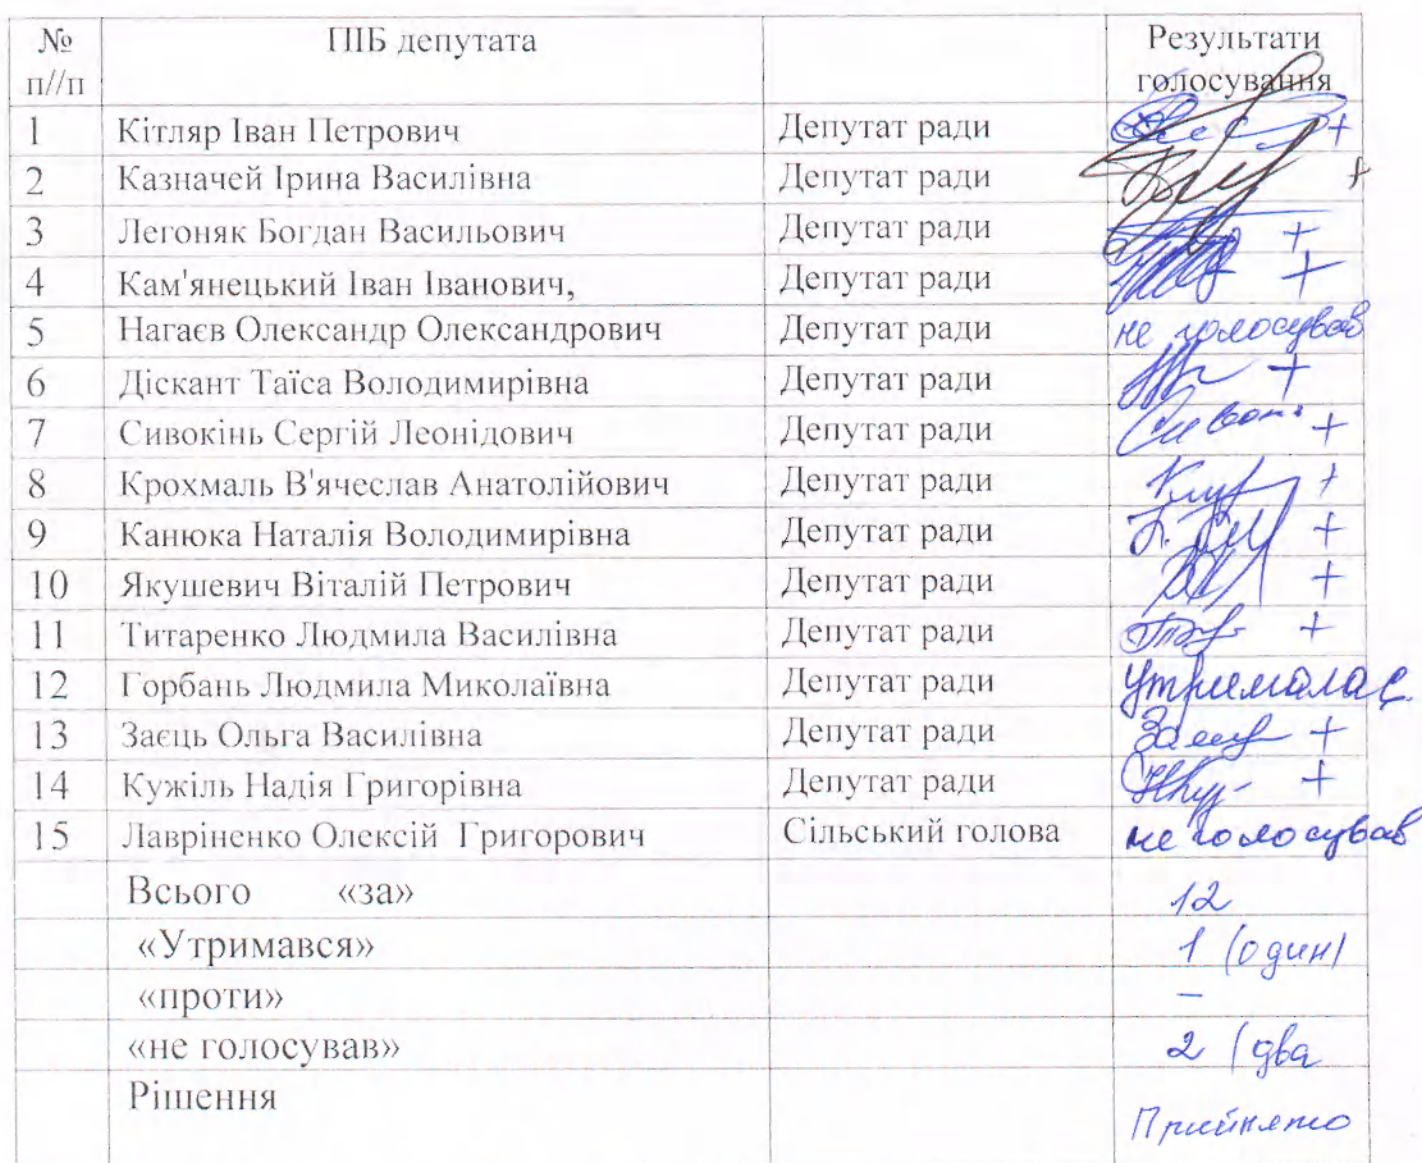 № п//п ПІБ депутата Результати голосування
1 Кітляр Іван Петрович Депутат ради +
2 Казначей Ірина Василівна Депутат ради +
3 Легоняк Богдан Васильович Депутат ради +
4 Кам'янецький Іван Іванович, Депутат ради +
5 Нагаєв Олександр Олександрович Депутат ради не голосував
6 Діскант Таїса Володимирівна Депутат ради +
7 Сивокінь Сергій Леонідович Депутат ради +
8 Крохмаль В'ячеслав Анатолійович Депутат ради +
9 Канюка Наталія Володимирівна Депутат ради +
10 Якушевич Віталій Петрович Депутат ради +
11 Титаренко Людмила Василівна Депутат ради +
12 Горбань Людмила Миколаївна Депутат ради утрималас.
13 Заєць Ольга Василівна Депутат ради +
14 Кужіль Надія Григорівна Депутат ради +
15 Лавріненко Олексій Григорович Сільський голова не голосував
Всього «за» 12
«Утримався» 1 (один)
«проти» –
«не голосував» 2 (два
Рішення Прийнято